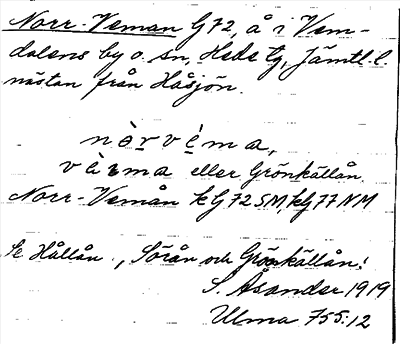 Norr-Veman G72, å i Vem-
dalens by o. sn, Heds tg, Jämtl. l.
nästan från Håsjön.
nòrvéma,
vèma eller Grönkällån.
Norr-Vemån kG 72 SM, kG 77 NM
Se Hållån, Sörån och Grönkällån!
S. Åsander 1919
Ulma 755:12